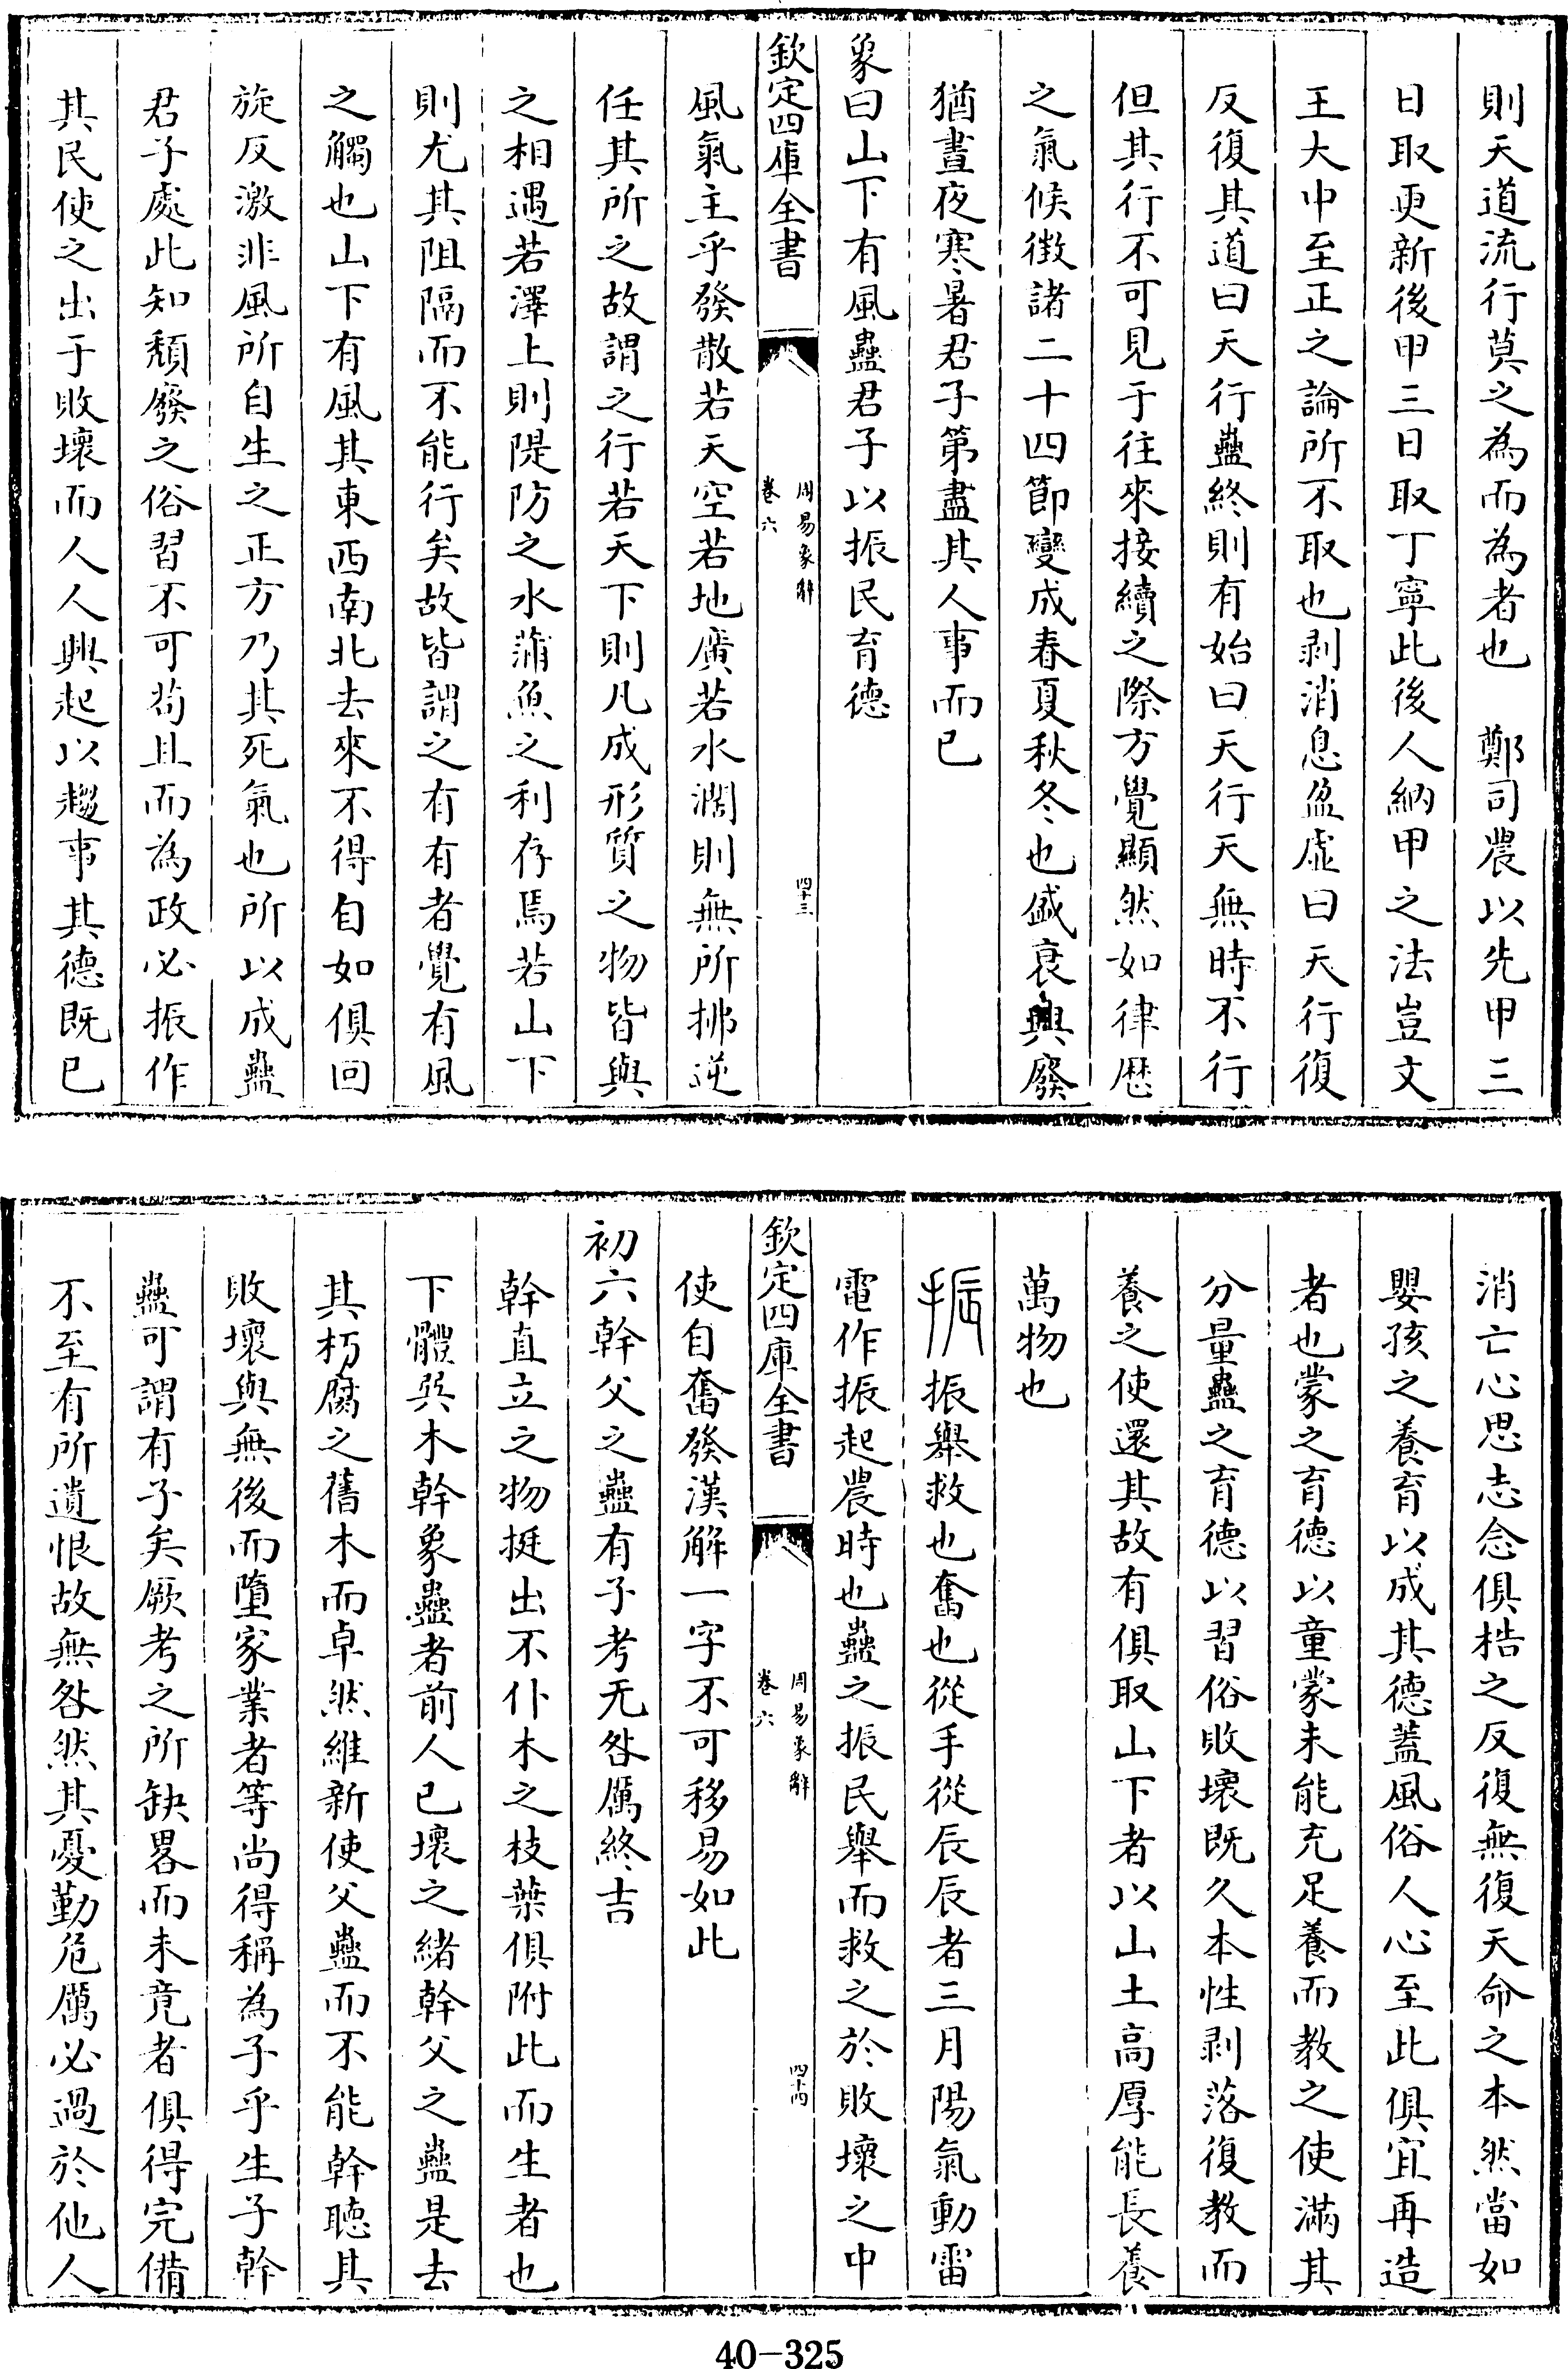 則天道流行莫之為而為者也　鄭司農以先甲三
日取更新後甲三日取丁寧此後人納甲之法豈文
王大中至正之論所不取也剥消息盈虛曰天行復
反復其道曰天行蠱終則有始曰天行天無時不行
但其行不可見于往來接續之際方覺顯然如律歴
之氣候徴諸二十四節變成春夏秋冬也盛衰興廢
猶晝夜寒暑君子第盡其人事而已
象曰山下有風蠱君子以振民育德
欽定四庫全書
周易象辭
卷六
四十三
風氣主乎發散若天空若地廣若水濶則無所拂逆
任其所之故謂之行若天下則凡成形質之物皆與
之相遇若澤上則隄防之水蒲魚之利存焉若山下
則尤其阻隔而不能行矣故皆謂之有有者覺有風
之觸也山下有風其東西南北去來不得自如俱回
旋反激非風所自生之正方乃其死氣也所以成蠱
君子處此知頽廢之俗習不可苟且而為政必振作
其民使之出于敗壞而人人興起以趨事其德既已
消亡心思志念俱梏之反復無復天命之本然當如
嬰孩之養育以成其德蓋風俗人心至此俱宜再造
者也蒙之育德以童蒙未能充足養而教之使滿其
分量蠱之育德以習俗敗壞既久本性剥落復教而
養之使還其故有俱取山下者以山土高厚能長養
萬物也
振振舉救也奮也從手從辰辰者三月陽氣動雷
電作振起農時也蠱之振民舉而救之於敗壞之中
欽定四庫全書
周易象辭
卷六
四十四
使自奮發漢解一字不可移易如此
初六幹父之蠱有子考无咎厲終吉
幹直立之物挺出不仆木之枝葉俱附此而生者也
下體巽木幹象蠱者前人已壞之緒幹父之蠱是去
其朽腐之舊木而卓然維新使父蠱而不能幹聽其
敗壞與無後而墮家業者等尚得稱為子乎生子幹
蠱可謂有子矣厥考之所缺畧而未竟者俱得完備
不至有所遺恨故無咎然其憂勤危厲必過於他人
40-325